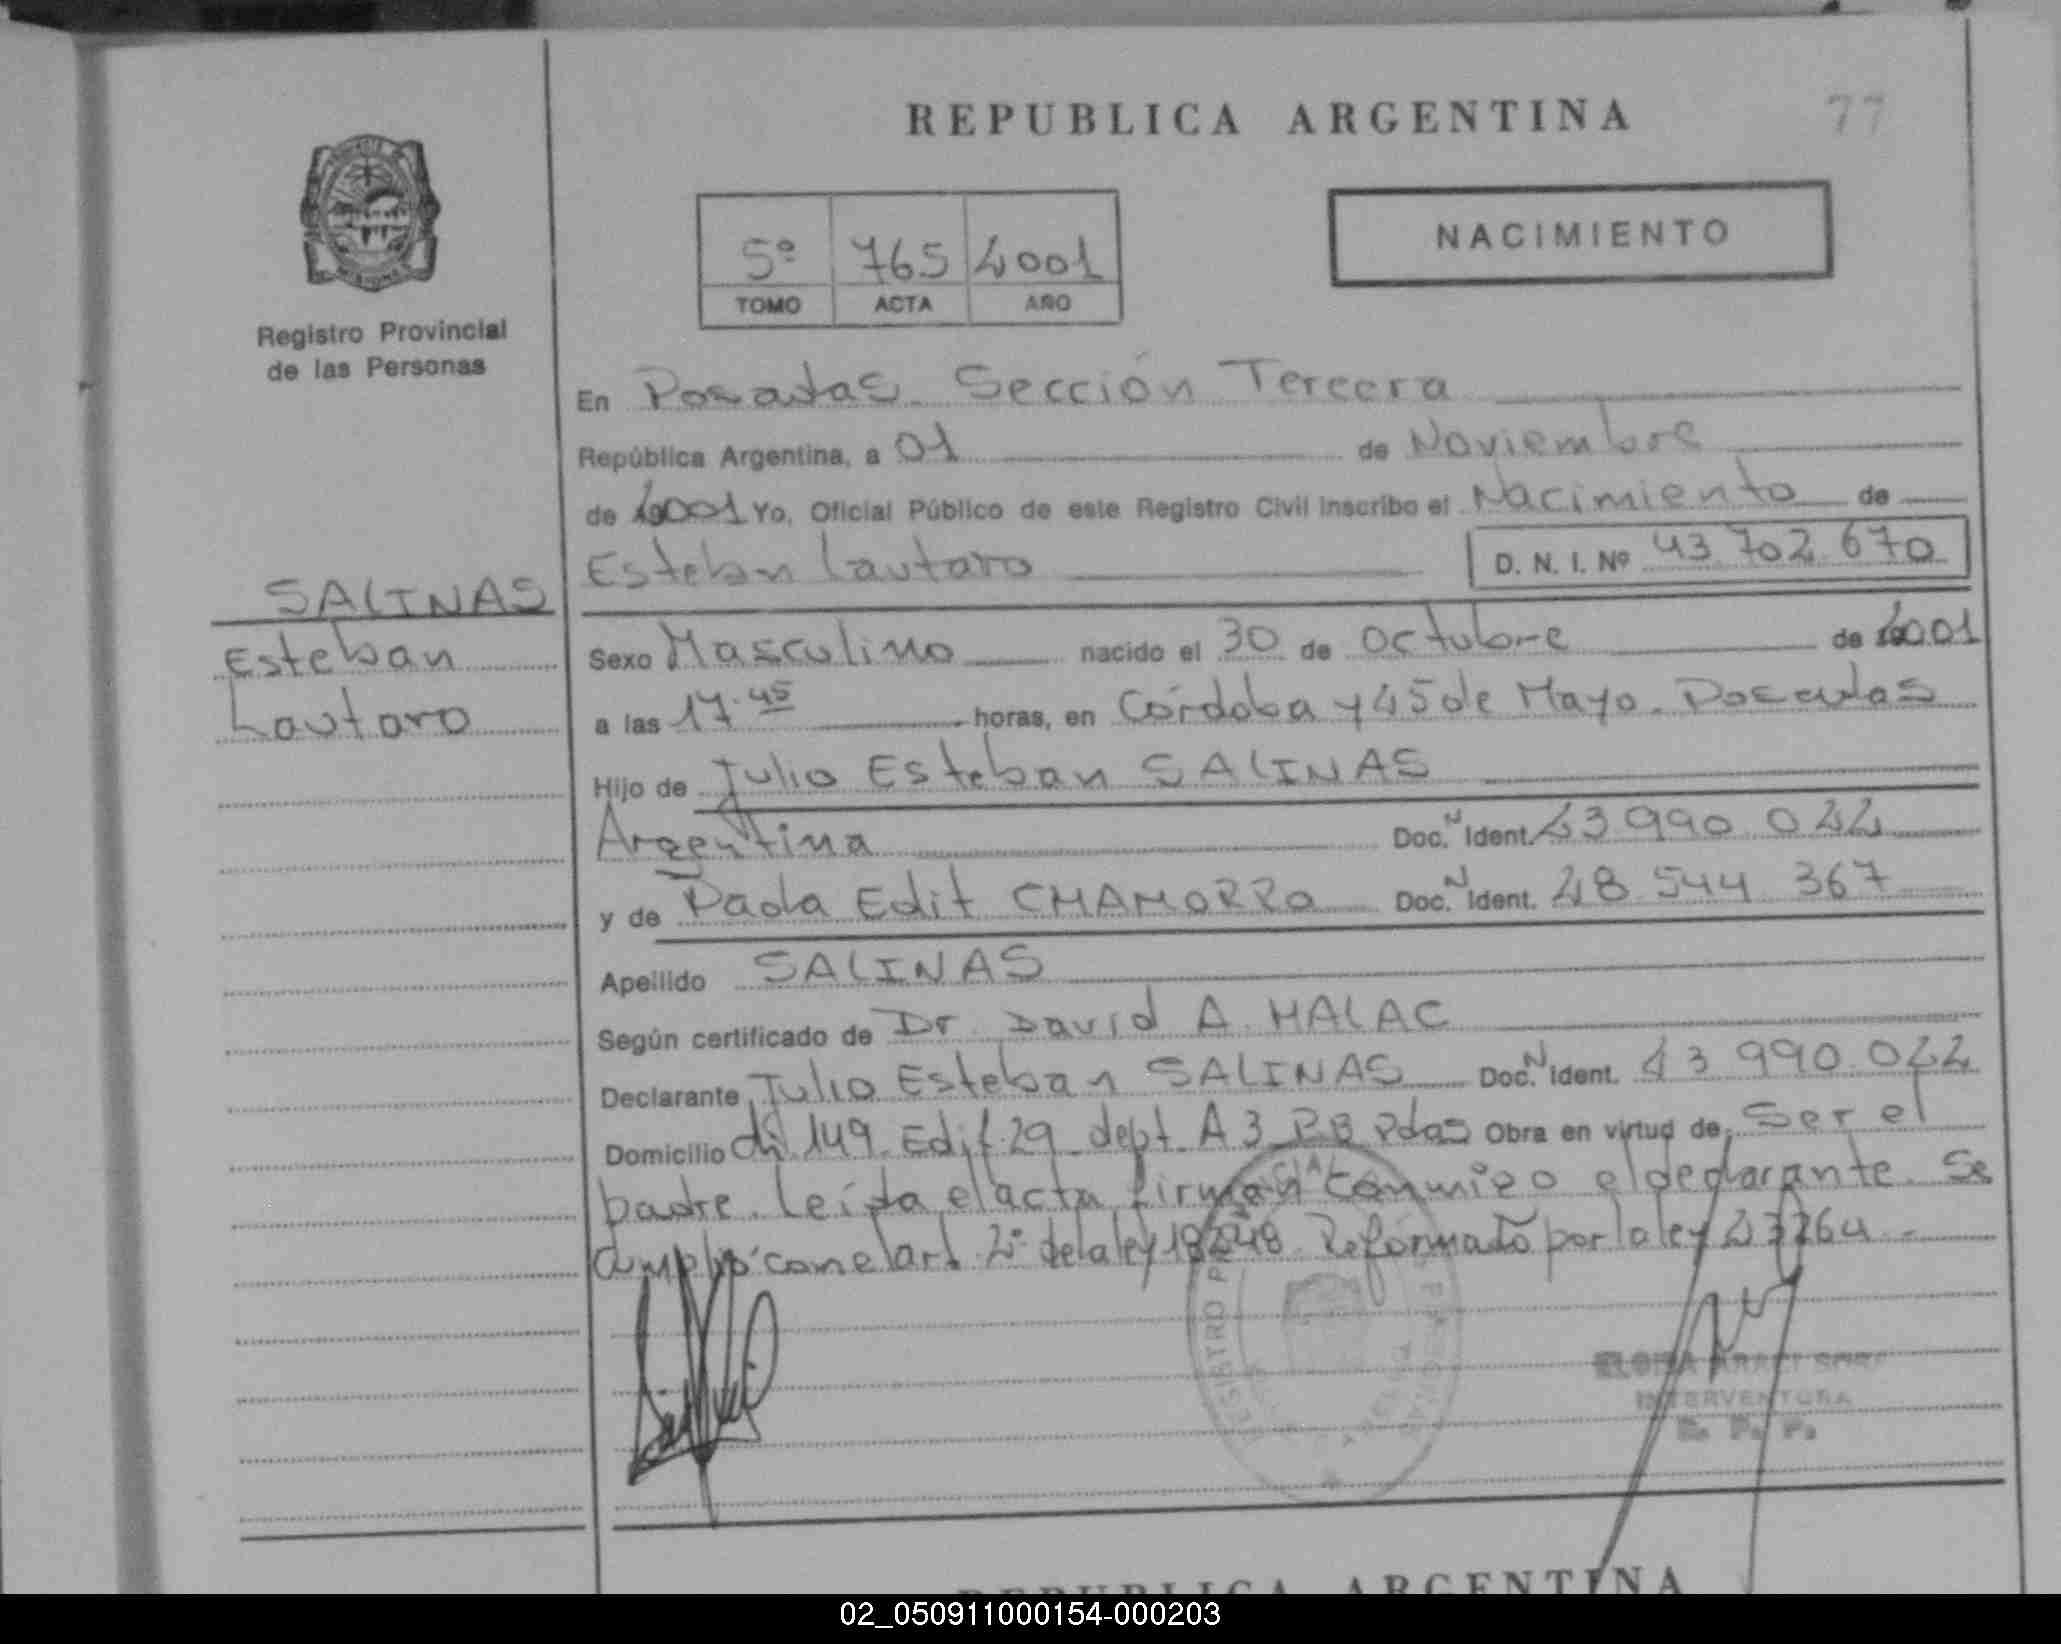 REPUBLICA ARGENTINA
77
Registro Provincial
de las Personas
5º 765 2001
TOMO ACTA AÑO
NACIMIENTO
En Posadas. Sección Tercera
República Argentina, a 01 de Noviembre
de 2001 Yo, Oficial Público de este Registro Civil inscribo el Nacimiento de
Esteban Lautaro D. N. I. Nº 43.702.670
SALINAS
Esteban
Lautaro
Sexo Masculino nacido el 30 de Octubre de 2001
a las 17.45 horas, en Córdoba y 25 de Mayo. Posadas
Hijo de Julio Esteban SALINAS
Argentina Doc. N Ident. 23 990 022
y de Paola Edit CHAMORRO Doc. N Ident. 28 544 367
Apellido SALINAS
Según certificado de Dr. David A. MALAC
Declarante Julio Esteban SALINAS Doc. N Ident. 23 990.022
Domicilio ch 149 Edif. 29 dept. A 3 PB Pdas Obra en virtud de Ser el
padre. Leída el acta firman conmigo el declarante. Se
cumplió con el art. 2º de la ley 18248. Reformado por la ley 23264.-
REGISTRO
INTERVENTORA
R. P. P.
REPUBLICA ARGENTINA
02_050911000154-000203